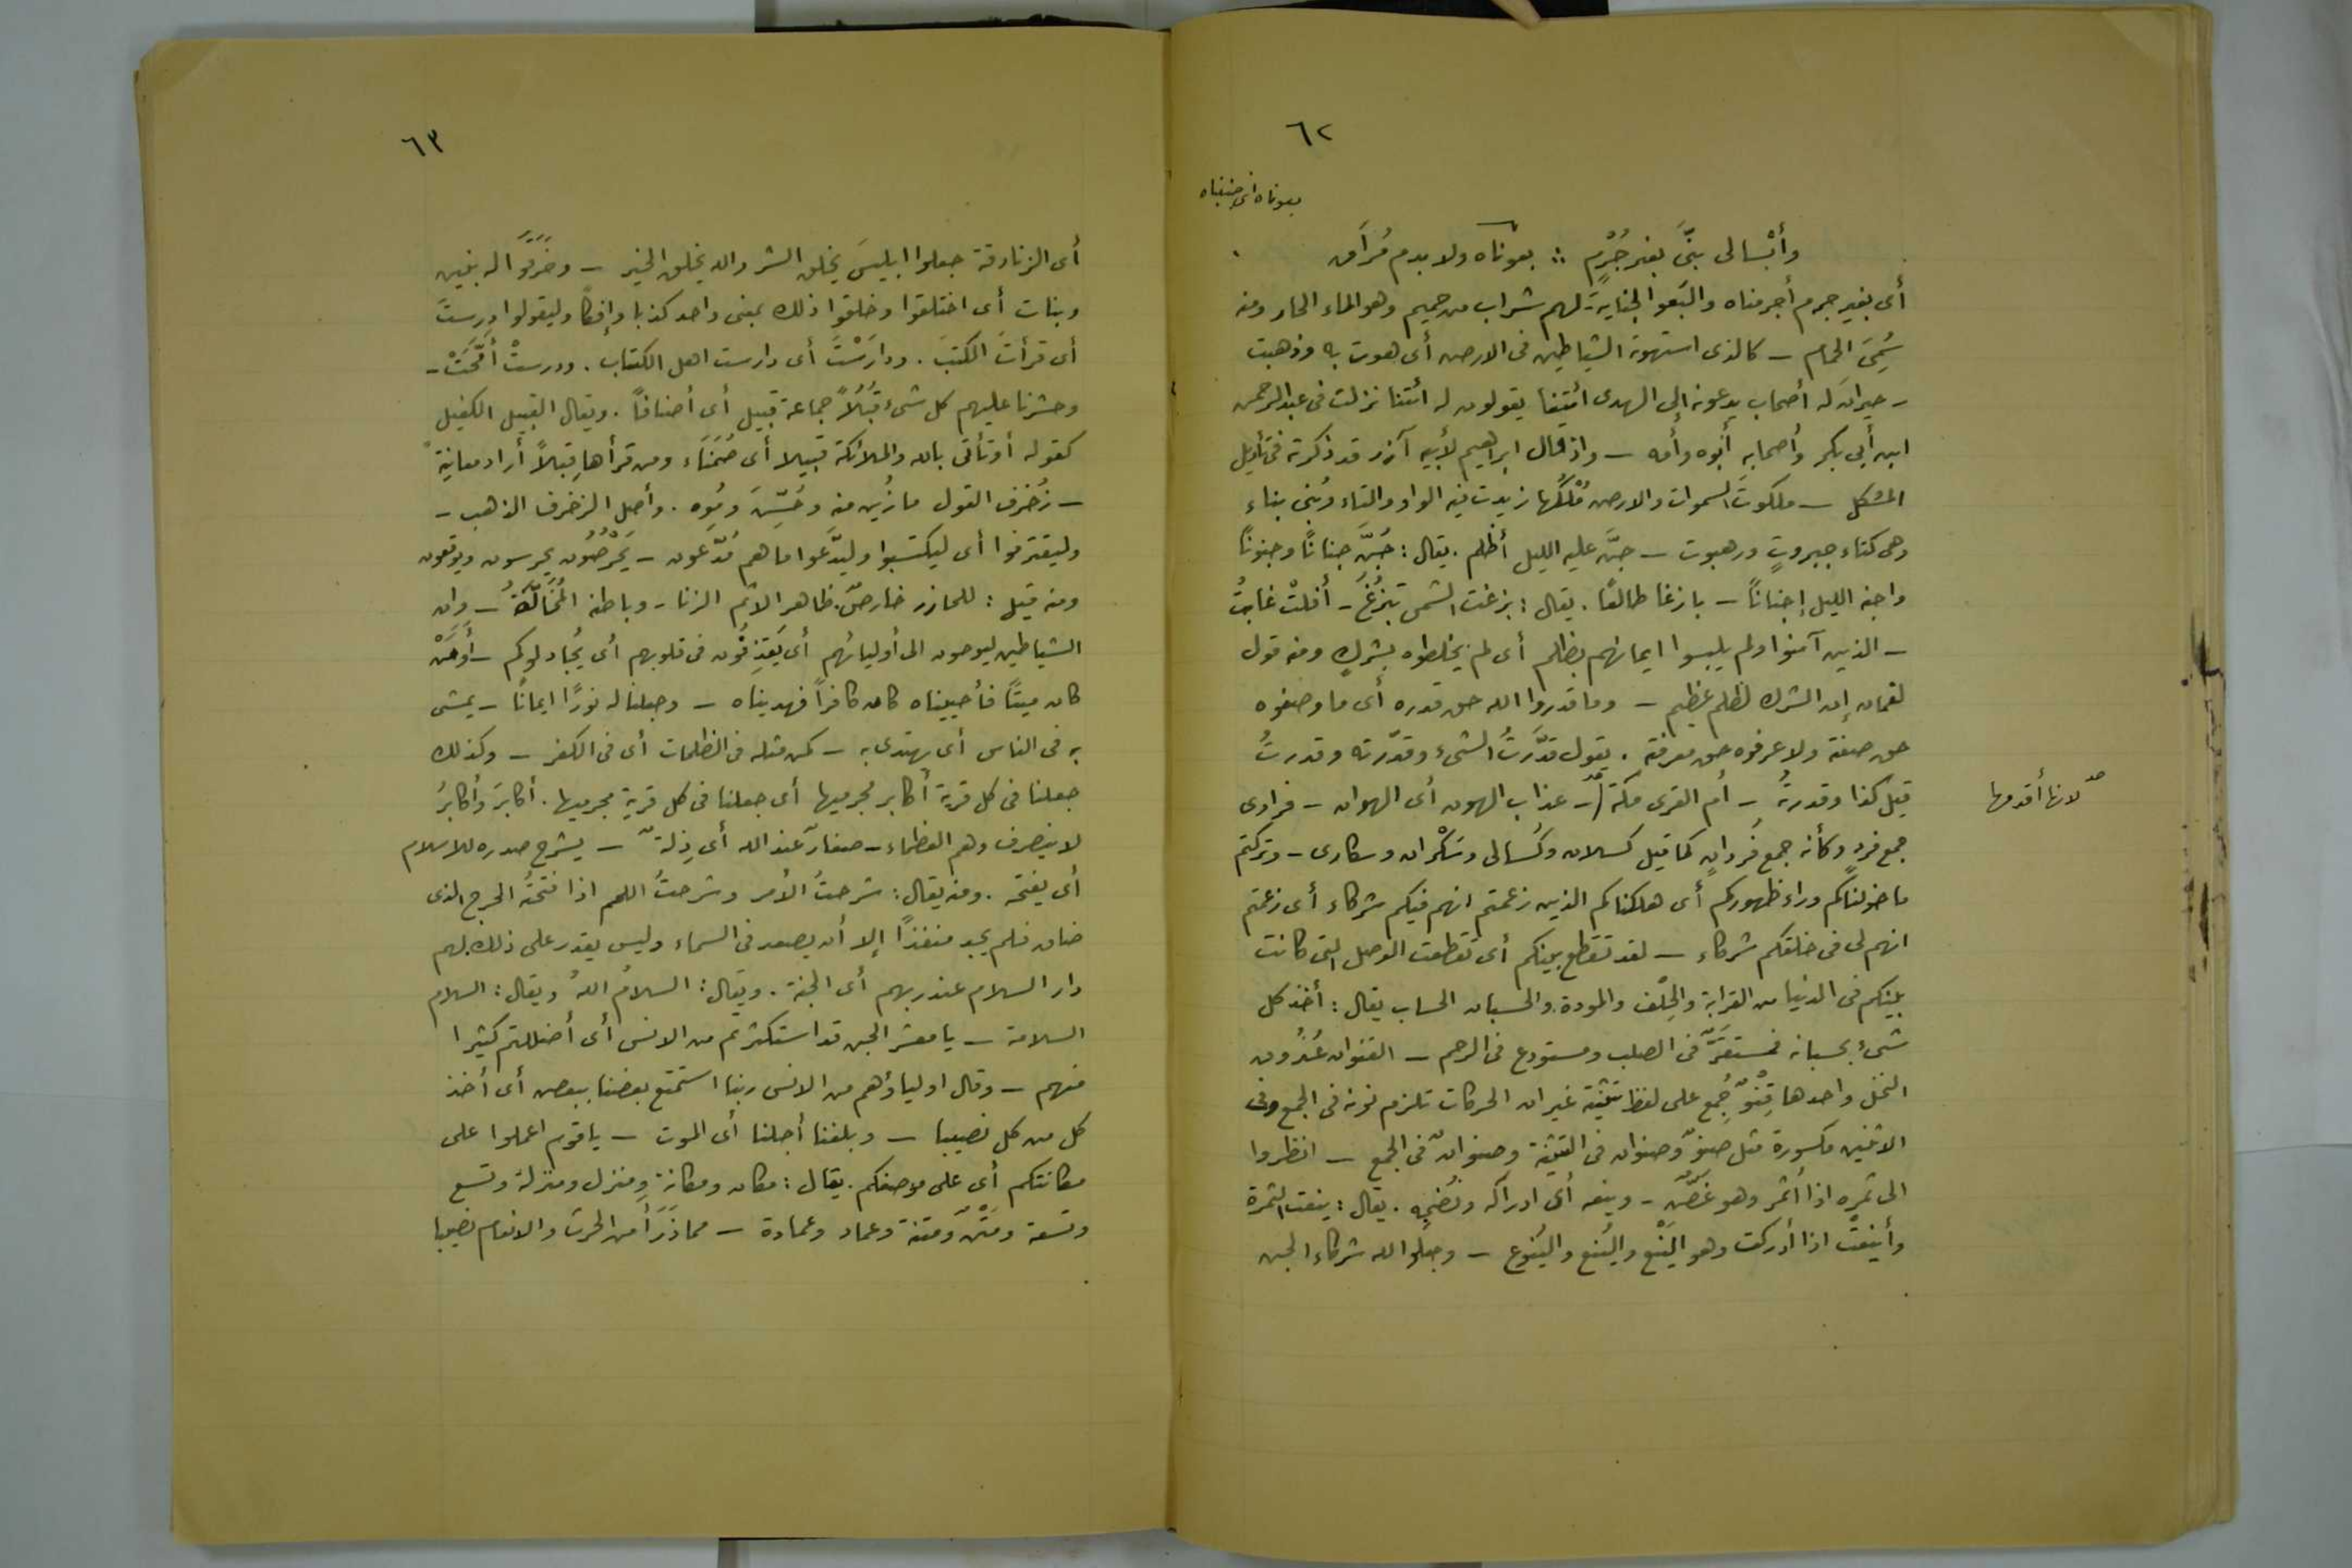 ٦٢
بعوناه أى جنيناه
وأبسالى بنىَّ بغير جُرْمٍ : بعوناه ولا بدم مُرَاق
أى بغير جرم أجرمناه والبَعو الجناية - لهم شراب من حميم وهو الماء الحار ومنه
سُمِىَ الحمام - كالذى استهوته الشياطين فى الارض أى هوت به وذهبت
- حيران له أصحاب يدعونه إلى الهدى ائتنا يقولون له ائتنا نزلت فى عبد الرحمن
ابن أبى بكر وأصحابه أبوه وأمه - واذ قال ابراهيم لأبيه آزر قد ذكرته فى تأويل
المشكل - ملكوت السموات والارض مُلْكُها زيدت فيه الواو والتاء وبُنى بناء
وهى كتاء جبروتٍ ورهبوت - جنَّ عليه الليل أظلم . يقال : جُنَّ جنانًا وجنونًا
واجنه الليل إجنانًا - بازغا طالعًا . يقال : بزغت الشمس تبزُغُ - أفلتْ غابتْ
- الذين آمنوا ولم يلبسوا ايمانهم بظلم أى لم يخلطوه بشركٍ ومنه قول
لقمان إن الشرك لظلم عظيم - وما قدروا الله حق قدره أى ما وصفوه
حق صفته ولا عرفوه حق معرفته . يقول قدَّرتُ الشىء وقدّرته وقدرتُ
قيل كذا وقدرتُه - أم القرى مكة - عذاب الهون أى الهوان - فرادى
لانها أقدمها
جمع فردٍ وكأنه جمع فَردانٍ كما قيل كسلان وكُسالى وسَكْران وسكارى - وتركتم
ما خولناكم وراء ظهوركم أى ملكناكم الذين زعمتم انهم فيكم شركاء أى زعمتم
انهم لى فى خلقكم شركاء - لقد تقطع بينكم أى تقطعت الوصل التى كانت
بينكم فى الدنيا من القرابة والحِلْف والمودة . والحسبان الحساب يقال : أخذ كل
شىء بحسبانه فمستقَرٌّ فى الصلب ومستودع فى الرحم - القنوان عُذُون
النخل واحدها قِنْوٌ جُمع على لفظ تثنيته غير ان الحركات تلزم نونه فى الجمع وفى
الاثنين مكسورة مثل صنوٌ وصنوان فى التثنية وصنوانٌ فى الجمع - انظروا
الى ثمره اذا أثمر وهو غَضٌّ - وينعه أى ادراكه ونُضْجِه . يقال : ينعت الثمرة
وأينعتْ اذا أدركت وهو اليَنْع واليُنع واليُنوع - وجعلوا لله شركاء الجن
٦٣
أى الزنادقة جعلوا ابليسَ يخلق الشر والله يخلق الخير - وخَرَقُوا له بنين
وبنات أى اختلقوا وخلقوا ذلك بمعنى واحد كذبا وإفكًا وليقولوا درستَ
أى قرأتَ الكتبَ . ودارَسْتَ أى دارست اهل الكتاب . ودرستْ أمَّحَتْ -
وحشرنا عليهم كل شىء قُبُلاً جماعة قبيل أى أصنافًا . ويقال القبيل الكفيل
كقوله أو تأتى بالله والملائكة قبيلا أى ضُمَناء ومن قرأها قِبلاً أراد معاينةً
- زُخرف القول ما زُين منه وحُسِّنَ ومُوِه . وأصل الزخرف الذهب -
وليقترفوا أى ليكتسبوا وليدَّعوا ما هم مُدّعون - يَخْرُصُون يحرسون ويوقعون
ومنه قيل : للحازر خارصٌ . ظاهر الاثم الزنا - وباطنه المُخَالَّةُ - وان
الشياطين ليوحون الى أوليائهم أى يَقذِفُون فى قلوبهم أى يُجادلوكم - أوَمَنْ
كان ميتًا فأحييناه كان كافرًا فهديناه - وجعلنا له نورًا ايمانًا - يمشى
به فى الناس أى يهتدى به - كمن مثله فى الظلمات أى فى الكفر - وكذلك
جعلنا فى كل قرية أكابر مجرميها أى جعلنا فى كل قرية مجرميها . أكابرَ وأكابرُ
لا ينصرف وهم العظماء - صغارٌ عند الله أى ذِلةٌ - يشرح صدره للاسلام
أى يفتحه . ومنه يقال : شرحتُ الأمر وشرحتُ اللحم اذا فتحتُه الحرج الذى
ضاق فلم يجد منفذًا إلا أن يصعد فى السماء وليس يقدر على ذلك . لهم
دار السلام عند ربهم أى الجنة . ويقال : السلامُ اللهُ ويقال : السلام
السلامة - يا معشر الجن قد استكثرتم من الانس أى أضللتم كثيرا
منهم - وقال اولياؤهم من الانس ربنا استمتع بعضنا ببعض أى أخذ
كل من كل نصيبا - وبلغنا أجلنا أى الموت - ياقوم اعملوا على
مكانتكم أى على موضعكم . يقال : مكان ومكانة ومنزل ومنزلة وتسع
وتسعة ومَتْنٌ ومتنة وعماد وعمادة - مما ذَرَأ من الحرث والانعام نصيبا